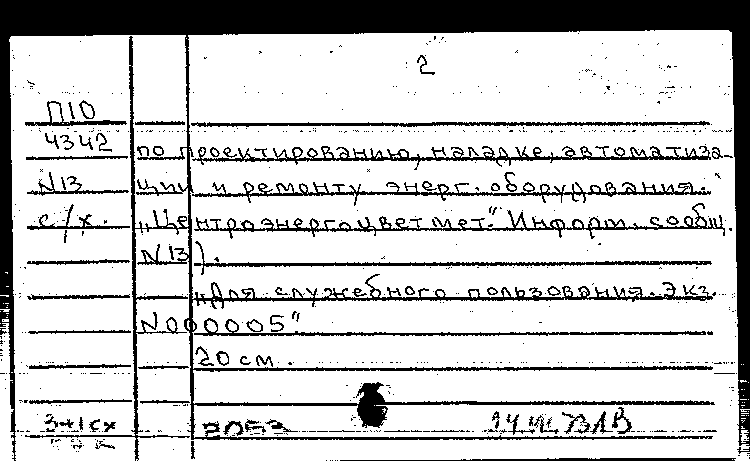 2
П10
4342 по проектированию, наладке, автоматиза-
N13 ции и ремонту энерг. оборудования.
с/х. „Центроэнергоцветмет." Информ. сообщ.
N13).
„Для служебного пользования. Экз.
N000005"
20 см.
3+1сх 2053 14.VII.73 ЛВ